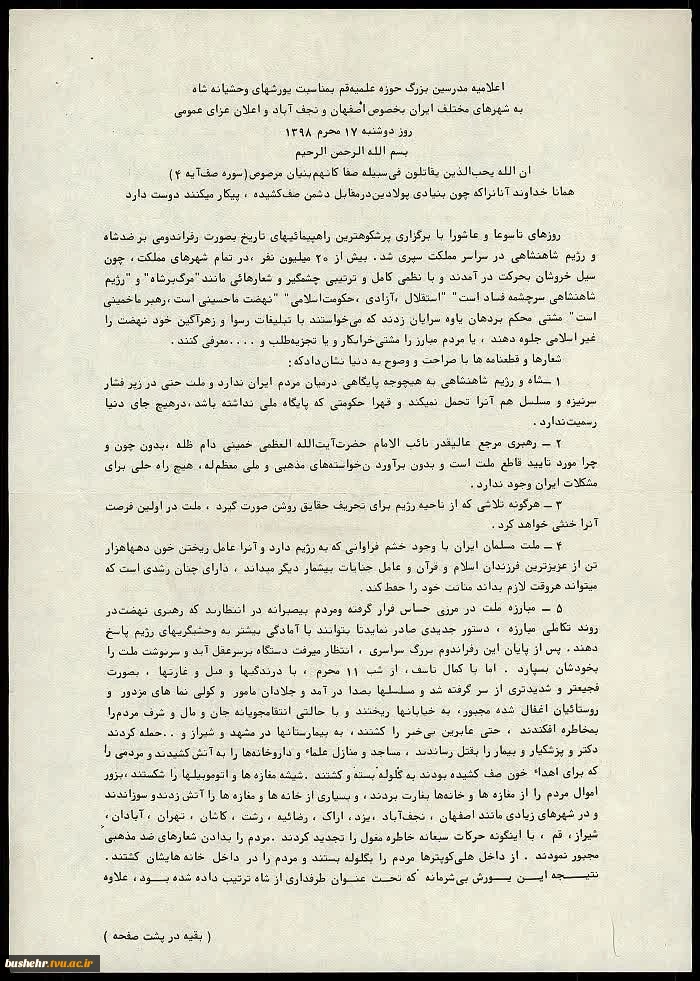 اعلامیه مدرسین بزرگ حوزه علمیه‌قم بمناسبت یورشهای وحشیانه شاه
به شهرهای مختلف ایران بخصوص اصفهان و نجف آباد و اعلان عزای عمومی
روز دوشنبه ۱۷ محرم ۱۳۹۸
بسم الله الرحمن الرحیم
ان الله یحب‌الذین یقاتلون فی‌سبیله صفا کانهم‌بنیان مرصوص (سوره صف‌آیه ۴)
همانا خداوند آنانراکه چون بنیادی پولادین‌درمقابل دشمن صف‌کشیده ، پیکار میکنند دوست دارد
روزهای تاسوعا و عاشورا با برگزاری پرشکوهترین راهپیمائیهای تاریخ بصورت رفراندومی بر ضدشاه
و رژیم شاهنشاهی در سراسر مملکت سپری شد. بیش از ۲۰ میلیون نفر ،در تمام شهرهای مملکت ، چون
سیل خروشان بحرکت در آمدند و با نظمی کامل و ترتیبی چشمگیر و شعارهائی مانند"مرگ‌برشاه" و "رژیم
شاهنشاهی سرچشمه فساد است" "استقلال ،آزادی ،حکومت‌اسلامی" "نهضت ماحسینی است ،رهبر ماخمینی
است" مشتی محکم بردهان یاوه سرایان زدند که می‌خواستند با تبلیغات رسوا و زهرآگین خود نهضت را
غیر اسلامی جلوه دهند ، یا مردم مبارز را مشتی‌خرابکار و یا تجزیه‌طلب و ....معرفی کنند .
شعارها و قطعنامه ها با صراحت و وضوح به دنیا نشان‌دادکه:
۱ ــ شاه و رژیم شاهنشاهی به هیچوجه پایگاهی درمیان مردم ایران ندارد و ملت حتی در زیر فشار
سرنیزه و مسلسل هم آنرا تحمل نمیکند و قهرا حکومتی که پایگاه ملی نداشته باشد ،درهیچ جای دنیا
رسمیت‌ندارد.
۲ ــ رهبری مرجع عالیقدر نائب الامام حضرت‌آیت‌الله العظمی خمینی دام ظله ،بدون چون و
چرا مورد تایید قاطع ملت است و بدون برآورد ن‌خواسته‌های مذهبی و ملی معظم‌له، هیچ راه حلی برای
مشکلات ایران وجود ندارد.
۳ ــ هرگونه تلاشی که از ناحیه رژیم برای تحریف حقایق روشن صورت گیرد ، ملت در اولین فرصت
آنرا خنثی خواهد کرد.
۴ ــ ملت مسلمان ایران با وجود خشم فراوانی که به رژیم دارد و آنرا عامل ریختن خون دهها‌هزار
تن از عزیزترین فرزندان اسلام و قرآن و عامل جنایات بیشمار دیگر میداند ، دارای چنان رشدی است که
میتواند هروقت لازم بداند متانت خود را حفظ کند .
۵ ــ مبارزه ملت در مرزی حساس قرار گرفته ومردم بیصبرانه در انتظارند که رهبری نهضت‌در
روند تکاملی مبارزه ، دستور جدیدی صادر نمایدتا بتوانند با آمادگی بیشتر به وحشیگریهای رژیم پاسخ
دهند. پس از پایان این رفراندوم بزرگ سراسری ، انتظار میرفت دستگاه برسرعقل آید و سرنوشت ملت را
بخودشان بسپارد . اما با کمال تاسف، از شب ۱۱ محرم ، با درندگیها و قتل و غارتها ، بصورت
فجیعتر و شدیدتری از سر گرفته شد و مسلسلها بصدا در آمد و جلادان مامور و کولی نما های مزدور و
روستائیان اغفال شده مجبور، به خیابانها ریختند و با حالتی انتقامجویانه جان و مال و شرف مردم‌را
بمخاطره افکندند ، حتی عابرین بی‌خبر را کشتند، به بیمارستانها در مشهد و شیراز و ..حمله کردند
دکتر و پزشکیار و بیمار را بقتل رساندند ، مساجد و منازل علماء و داروخانه‌ها را به آتش کشیدند و مردمی را
که برای اهداء خون صف کشیده بودند به گلوله بسته و کشتند .شیشه مغازه ها و اتومبیلها را شکستند ،بزور
اموال مردم را از مغازه ها و خانه‌ها بغارت بردند ، و بسیاری از خانه ها و مغازه ها را آتش زدندو سوزاندند
و در شهرهای زیادی مانند اصفهان ، نجف‌آباد ،یزد، اراک ، رضائیه ، رشت ، کاشان ، تهران ، آبادان ،
شیراز، قم ، با اینگونه حرکات سبعانه خاطره مغول را تجدید کردند .مردم را بدادن شعارهای ضد مذهبی
مجبور نمودند . از داخل هلی‌کوپترها مردم را بگلوله بستند و مردم را در داخل خانه هایشان کشتند .
نتیجه این یورش بی‌شرمانه که تحت عنوان طرفداری از شاه ترتیب داده شده بود ، علاوه
( بقیه در پشت صفحه )
bushehr.tvu.ac.ir